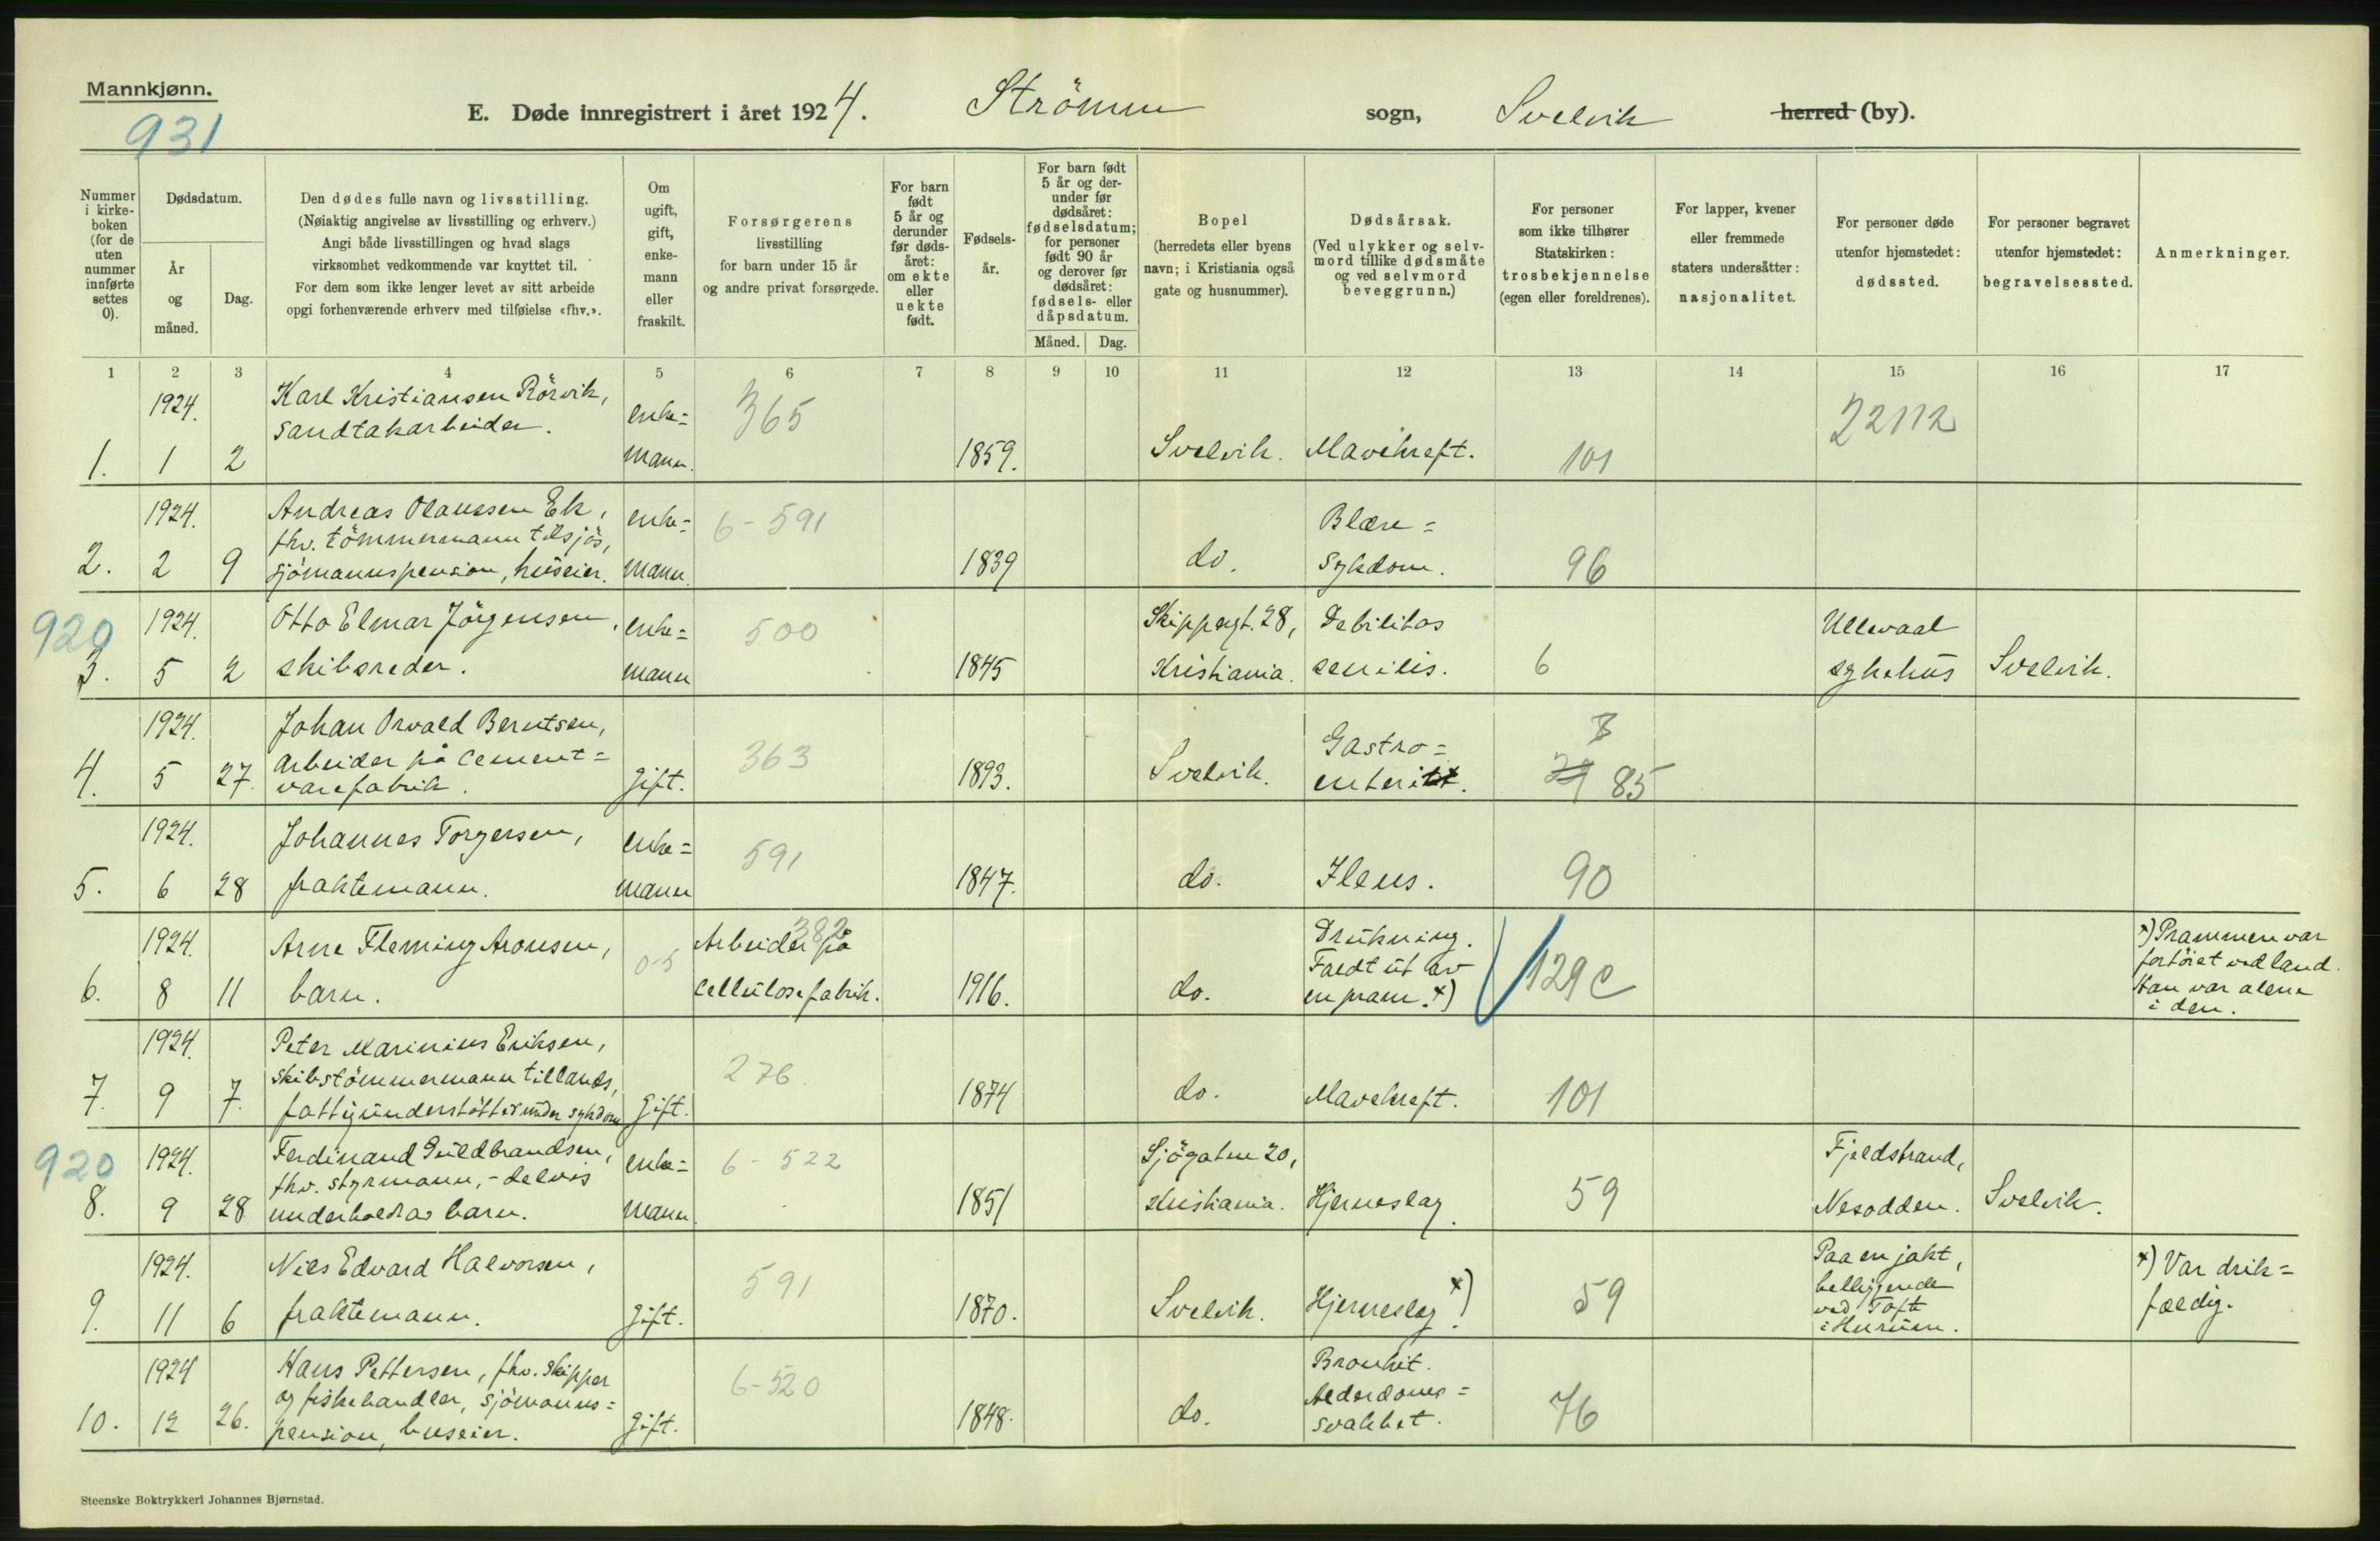 Mannkjønn.
931
E. Døde innregistrert i året 1924. Strömm sogn, Svelvik herred (by).
Nummer i kirke-boken (for de uten nummer innførte settes 0).
Dødsdatum.
År og måned.
Dag.
Den dødes fulle navn og livsstilling.
(Nøiaktig angivelse av livsstilling og erhverv.)
Angi både livsstillingen og hvad slags
virksomhet vedkommende var knyttet til.
For dem som ikke lenger levet av sitt arbeide
opgi forhenværende erhverv med tilføielse «fhv.».
Om ugift, gift, enke-mann eller fraskilt.
Forsørgerens
livsstilling
for barn under 15 år
og andre privat forsørgede.
For barn født 5 år og derunder før døds-året: om ekte eller uekte født.
Fødsels-år.
For barn født 5 år og der-under før dødsåret: fødselsdatum; for personer født 90 år og derover før dødsåret: fødsels- eller dåpsdatum.
Måned. Dag.
Bopel
(herredets eller byens
navn; i Kristiania også
gate og husnummer).
Dødsårsak.
(Ved ulykker og selv-
mord tillike dødsmåte
og ved selvmord
beveggrunn.)
For personer
som ikke tilhører
Statskirken:
trosbekjennelse
(egen eller foreldrenes).
For lapper, kvener
eller fremmede
staters undersåtter:
nasjonalitet.
For personer døde
utenfor hjemstedet:
dødssted.
For personer begravet
utenfor hjemstedet:
begravelsessted.
Anmerkninger.
1 2 3 4 5 6 7 8 9 10 11 12 13 14 15 16 17
1924. Karl Kristiansen Rörvik, enke= 365 22112
sandtakarbeider.
1. 1 2 mann. 1859. Svelvik. Mavekreft. 101
1924. Andreas Olaussen Ek, enke= 6-591 Blære=
fhv. tömmermann tilsjös,
2. 2 9 sjömannspension, huseier. mann. 1839 do. sykdom. 96
920 1924. Otto Elmar Jörgensen, enke= 500 Skippergt. 28, Debilitas Ullevaal
3. 5 2 skibsreder. mann 1845 Kristiania. senilis. 6 sykehus Svelvik.
1924. Johan Osvald Berntsen, 8
arbeider på cement= 363 Gastro=
4. 5 27. varefabrik. gift. 1893. Svelvik. enterit. 85
1924. Johannes Torgersen, enke= 591
5. 6 28 fraktemann. mann 1847. do. Ileus. 90
1924. Arne Fleming Aronsen, 0-5 Arbeider på 382 Drukning. x) Prammen var
Faldt ut av fortöiet ved land.
6. 8 11 barn. cellulosefabrik. 1916. do. en pram. x) 129c Han var alene
i den.
1924. Peter Marinius Eriksen, 276.
skibstömmermann tillands,
7. 9 7. fattigunderstöttet under sykdom gift. 1874 do. Mavekreft. 101
920 1924. Ferdinand Guldbrandsen, enke= 6-522 Sjögaten 20, Fjeldstrand,
fhv. styrmann, - delvis
8. 9 28 underholdt av barn. mann. 1851 Kristiania. Hjerneslag. 59 Nesodden. Svelvik.
1924. Nils Edvard Halvorsen, 591 Paa en jakt, x) Var drik=
beliggende
9. 11 6 fraktemann. gift. 1870. Svelvik. Hjerneslag x). 59 ved Tofte fældig.
i Hurum.
1924 Hans Pettersen, fhv. skipper 6-520 Bronkit.
og fiskehandler, sjömanns= Alderdoms=
10. 12 26. pension, huseier. gift. 1848. do. svakhet. 76
Steenske Boktrykkeri Johannes Bjørnstad.